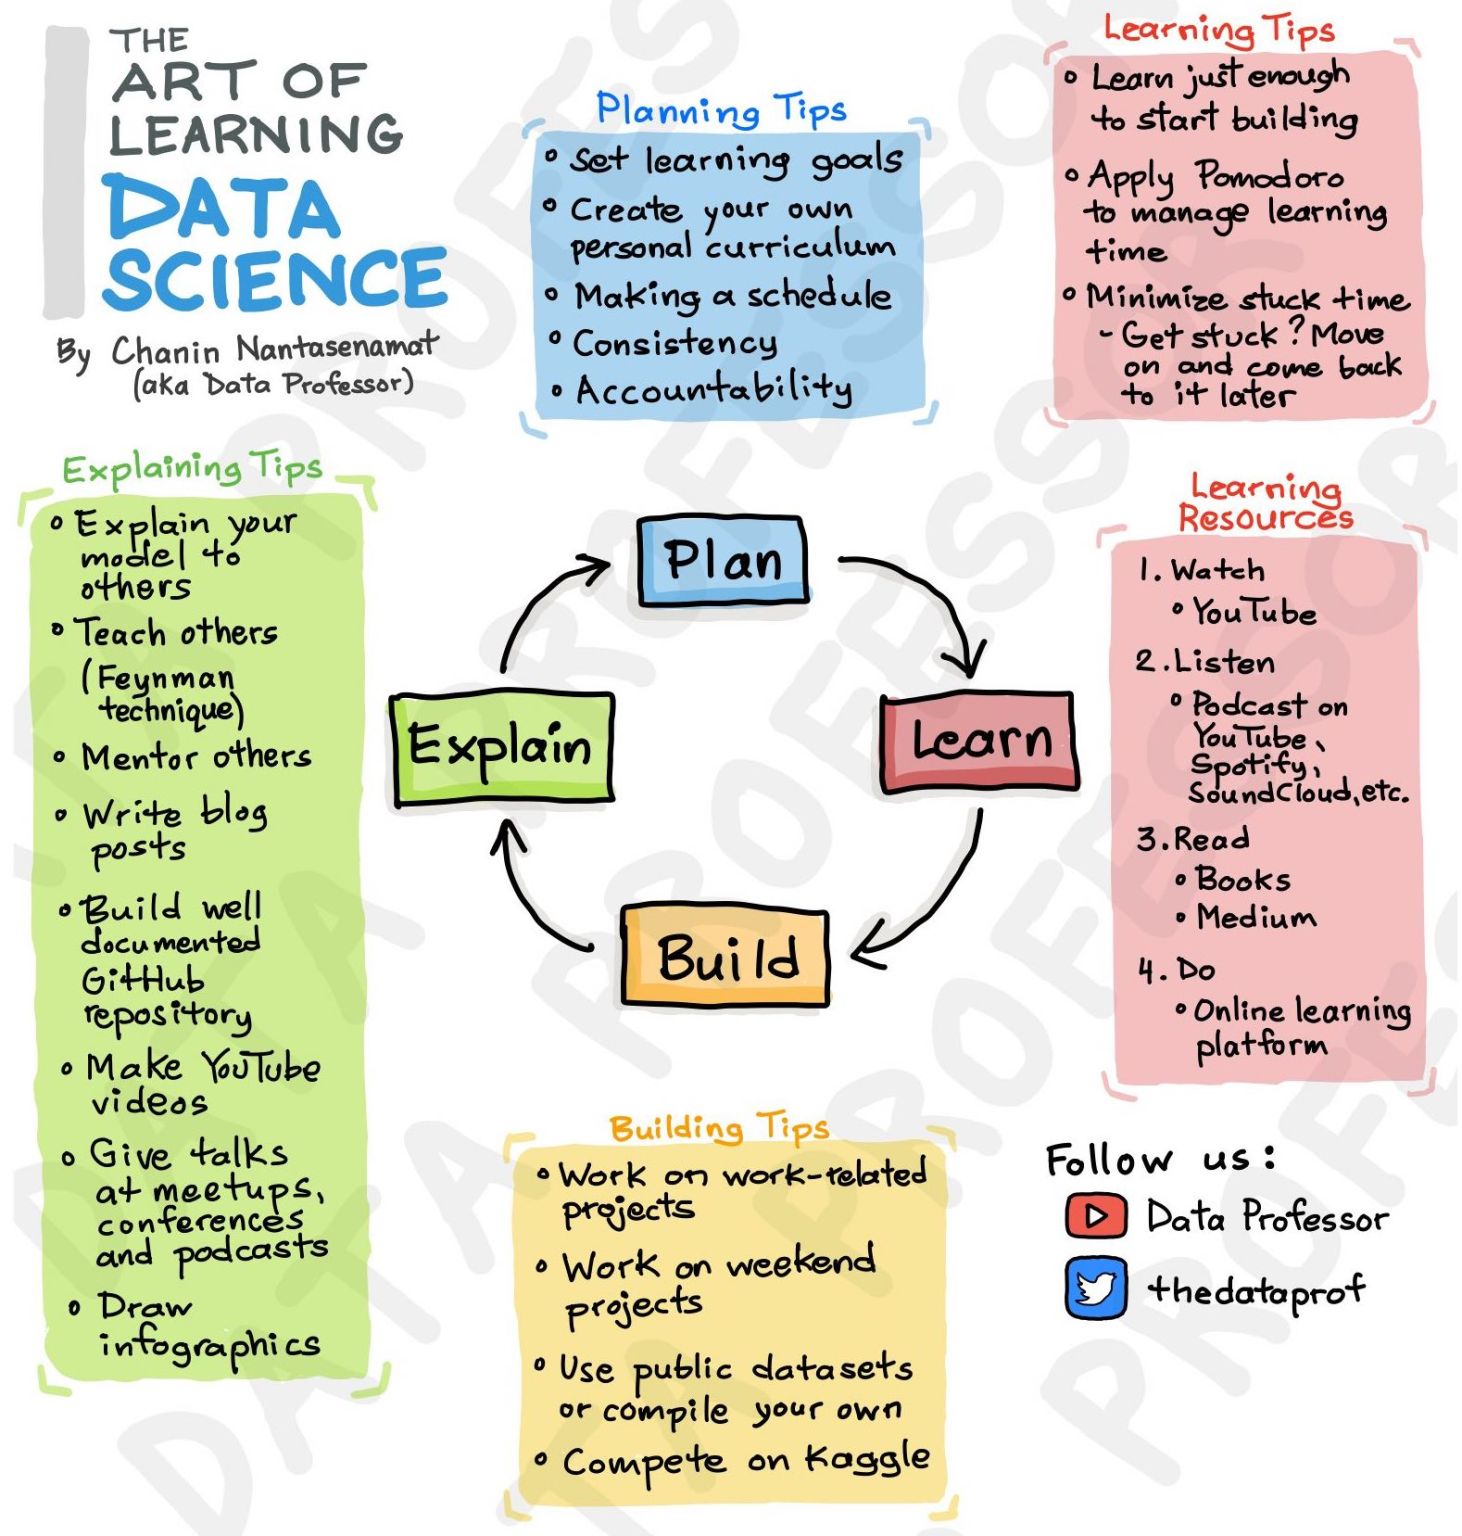 THE
ART OF
LEARNING
DATA
SCIENCE
By Chanin Nantasenamat
(aka Data Professor)
Planning Tips
• Set learning goals
• Create your own
personal curriculum
• Making a schedule
• Consistency
• Accountability
Learning Tips
• Learn just enough
to start building
• Apply Pomodoro
to manage learning
time
• Minimize stuck time
- Get stuck? Move
on and come back
to it later
Explaining Tips
• Explain your
model to
others
• Teach others
(Feynman
technique)
• Mentor others
• Write blog
posts
• Build well
documented
GitHub
repository
• Make YouTube
videos
• Give talks
at meetups,
conferences
and podcasts
• Draw
infographics
Plan
Learn
Build
Explain
Learning
Resources
1. Watch
• YouTube
2. Listen
• Podcast on
YouTube,
Spotify,
SoundCloud, etc.
3. Read
• Books
• Medium
4. Do
• Online learning
platform
Building Tips
• Work on work-related
projects
• Work on weekend
projects
• Use public datasets
or compile your own
• Compete on Kaggle
Follow us:
Data Professor
thedataprof
DATA PROFESSOR
DATA PROFESSOR
DATA PROFESSOR